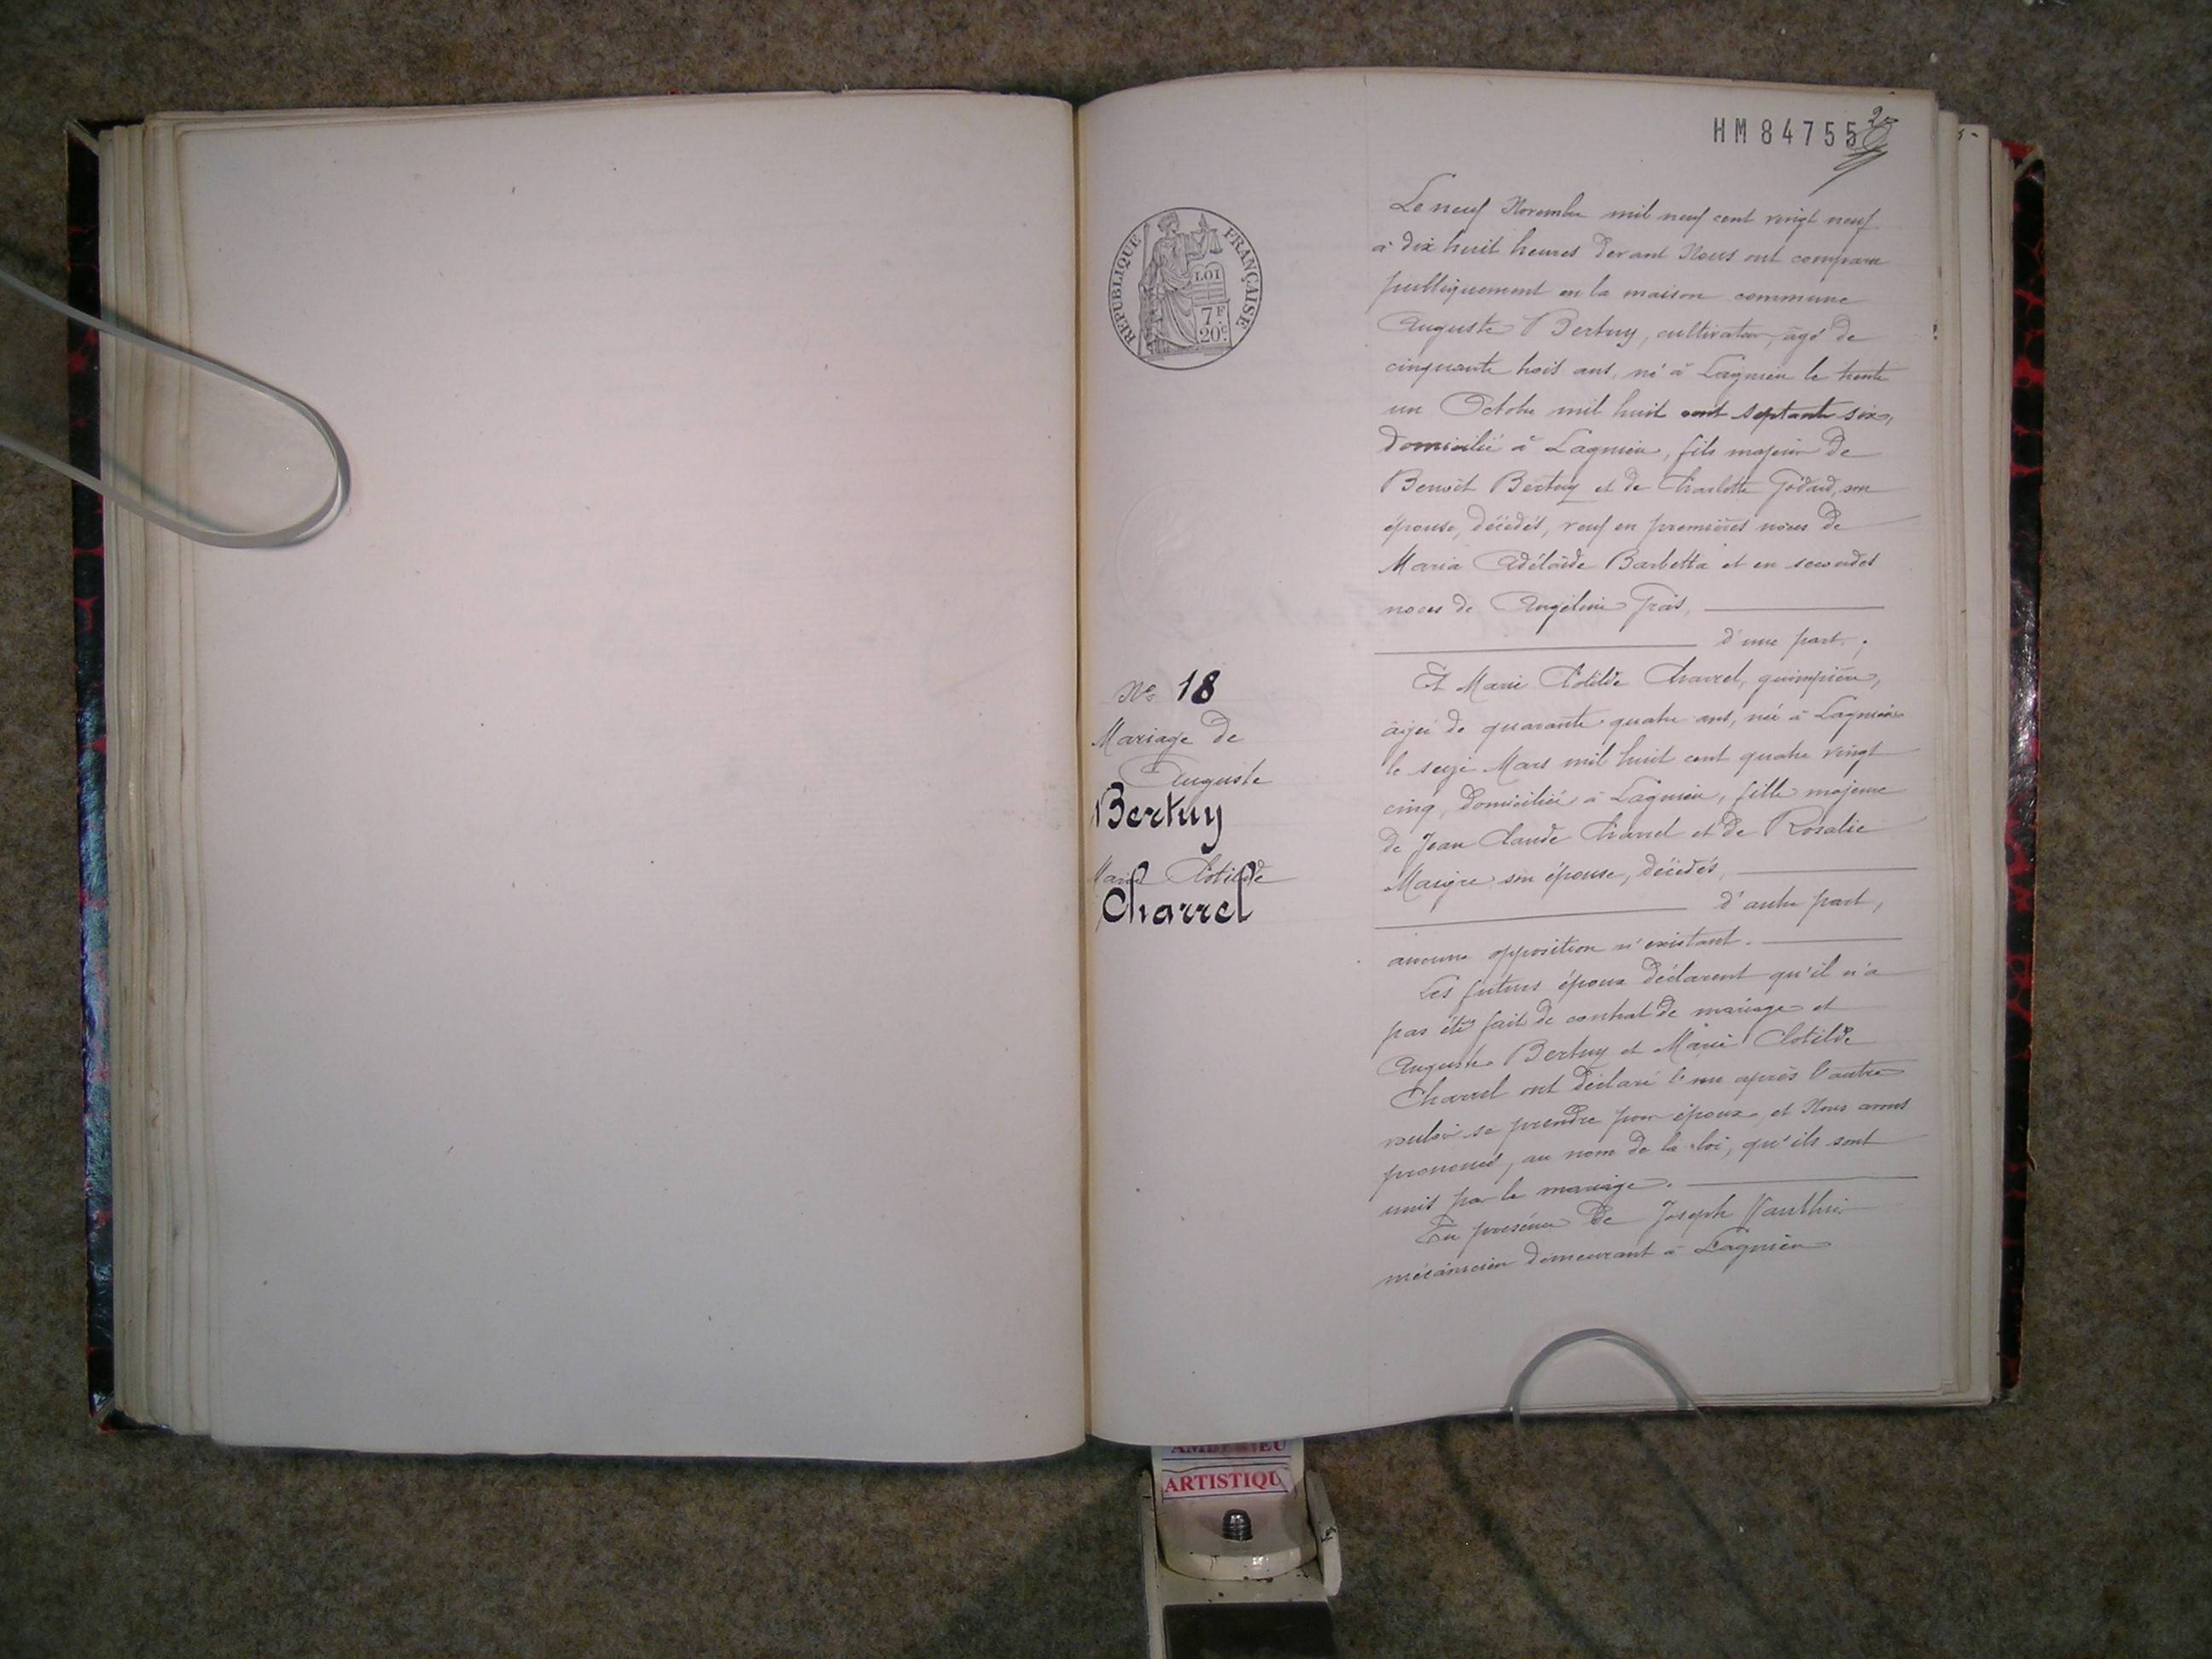 HM 84755
REPUBLIQUE FRANÇAISE
LOI
7F
20c.
Nº 18
Mariage de
Auguste
Bertuy
Marie Clotilde
Charrel
Le neuf Novembre mil neuf cent vingt neuf
à dix huit heures devant Nous ont comparu
publiquement en la maison commune
Auguste Bertuy, cultivateur, âgé de
cinquante trois ans, né à Lagnieu le trente
un Octobre mil huit cent septante six,
domicilié à Lagnieu, fils majeur de
Benoît Bertuy et de Charlotte Godard, son
épouse, décédés, veuf en premières noces de
Maria Adélaïde Barbetta et en secondes
noces de Angéline Grás,
d'une part ;
Et Marie Clotilde Charrel, guimpière,
âgée de quarante quatre ans, née à Lagnieu
le seize Mars mil huit cent quatre vingt
cinq, domiciliée à Lagnieu, fille majeure
de Jean Claude Charrel et de Rosalie
Maigre son épouse, décédés,
d'autre part,
aucune opposition n'existant.
Les futurs époux déclarent qu'il n'a
pas été fait de contrat de mariage et
Auguste Bertuy et Marie Clotilde
Charrel ont déclaré l'un après l'autre
vouloir se prendre pour époux, et Nous avons
prononcé, au nom de la loi, qu'ils sont
unis par le mariage.
En présence de Joseph Vauthier
mécanicien demeurant à Lagnieu
ARTISTIQU